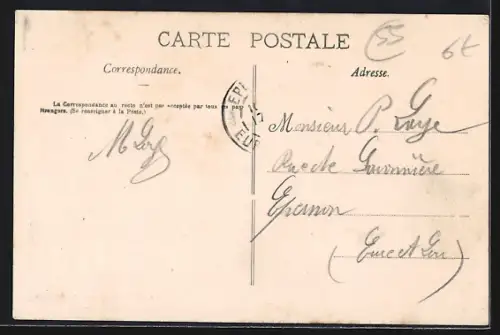 CARTE POSTALE
55
6t
Correspondance.
Adresse.
La Correspondance au recto n'est pas acceptée par tous les pays
Etrangers. (Se renseigner à la Poste.)
EPE
EUR
Monsieur P. Loye
M Loye
Rue de Savonnière
Epernon
(Eure et Loir)